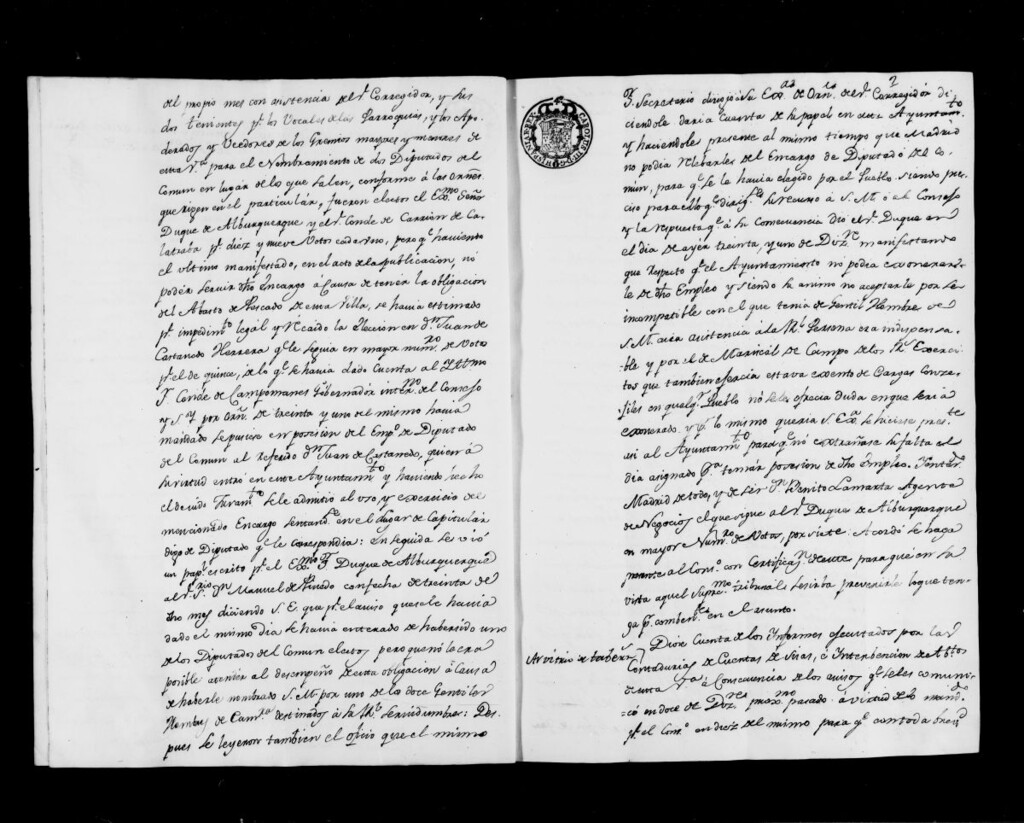 del propio mes con asistencia del Sr. Corregidor, y sus
dos tenientes pr. los Vocales de las Parroquias, y los Apo-
derados, y Veedores de los Gremios mayores y menores de
esta Va. para el Nombramiento de dos Diputados del
Comun en lugar de los que salen, conforme à las Orns.
que rigen en el particular, fueron electos el Exmo. Señor
Duque de Alburquerque y el Sr. Conde de Carrion de Ca-
latrava pr. diez y nueve Votos cada vno, pero qe. haviento
el vltimo manifestado, en el acto de la publicacion, no
podèr servir dho Encargo à causa de tener la obligacion
del Abasto de Pescado de esta Villa, se havia estimado
pr. impedimto. legàl y recaido la eleccion en Dn. Juan de
Castanedo Herrera qe. le seguia en mayor numro. de Votos
pr. el de quince, de lo qe. se havia dado cuenta al Illmo
Sr. Conde de Campomanes Gobernador interno. del Consejo
y S. Y. por Orn. de treinta y uno del mismo havia
mandado se pusiese en posesion del Empo. de Diputado
del Comun al referido Dn. Juan de Castanedo, quien à
su virtud entrò en este Ayuntamto. y haviendo hecho
el devido Juramto. se le admitiò al vso, y exercicio del
mencionado Encargo sentandose. en el lugar de Capitular
digo de Diputado qe. le correspondia: En seguida se viò
un papl. escrito pr. el Exmo. Sr. Duque de Alburquerque
al Sr. Srio. Dn. Manuel de Pinedo con fecha de treinta de
dho mes diciendo S. E. que pr. el aviso que se le havia
dado el mismo dia se havia enterado de haber sido uno
de los Diputados del Comun electos pero que no le era
posible atender al desempeño de esta obligacion à causa
de haberle nombrado S. M. por uno de los doce Gentiles
Hombres de Camra. destinados à su Rl. servidumbre: Des-
pues se leyeron tambien el oficio que el mismo
2
Sr. Secretario dirigiò à su Exa. de Orn. del Sr. Corregidor di-
ciendole daria Cuenta de su papel en este Ayuntamto.
y haciendole presente al mismo tiempo que Madrid
no podia relebarles del Encargo de Diputado del Co-
mún, para qe. se le havia elegido por el Pueblo siendo pre-
ciso para ello qe. dirigse. su recurso à S. M. ò al Consejo
y la respuesta qe. à su Consecuencia diò el Sr. Duque en
el dia de ayer treinta, y uno de Dizre. manifestando
que respecto qe. el Ayuntamiento no podia exonerar-
le de dho Empleo y siendo su animo no aceptarlo por ser
incompatible con el que tenia de Gentil Hombre de
S. M. cuia asistencia à la Rl. Persona era indispensa-
ble y por el de Mariscàl de Campo de los Rs. Exerci-
tos que tambien exercia estava exento de Cargas Conze-
giles en qualqr. Pueblo no se les ofrecia duda en que seria
exonerado y pr. lo mismo queria S. Exa. se hiciese preste.
asi al Ayuntamto. para qe. nò extrañase su falta el
dia asignado pa. tomàr posesion de dho Empleo. Enterdo.
Madrid de todo, y de ser Dn. Benito Lamarta Agente
de Negocios el que sigue al Sr. Duque de Alburquerque
en mayor Numro. de Votos, por siete: Acordò se haga
presente al Conso. con Certificacn. de este para que en su
vista aquel Supremo. tribunal se sirva prevenirle lo que ten-
ga pr. combente. en el asunto.
Diose Cuenta de los Informes executados por las
Contadurias de Cuentas de Sisas, è Intervencion de Abtos
de esta Va. à Consecuencia de los avisos qe. se les comuni-
cò en doce de Dizre. proxmo. pasado à virtud de lo mando.
pr. el Conso. en diez del mismo para qe. con toda brevd.